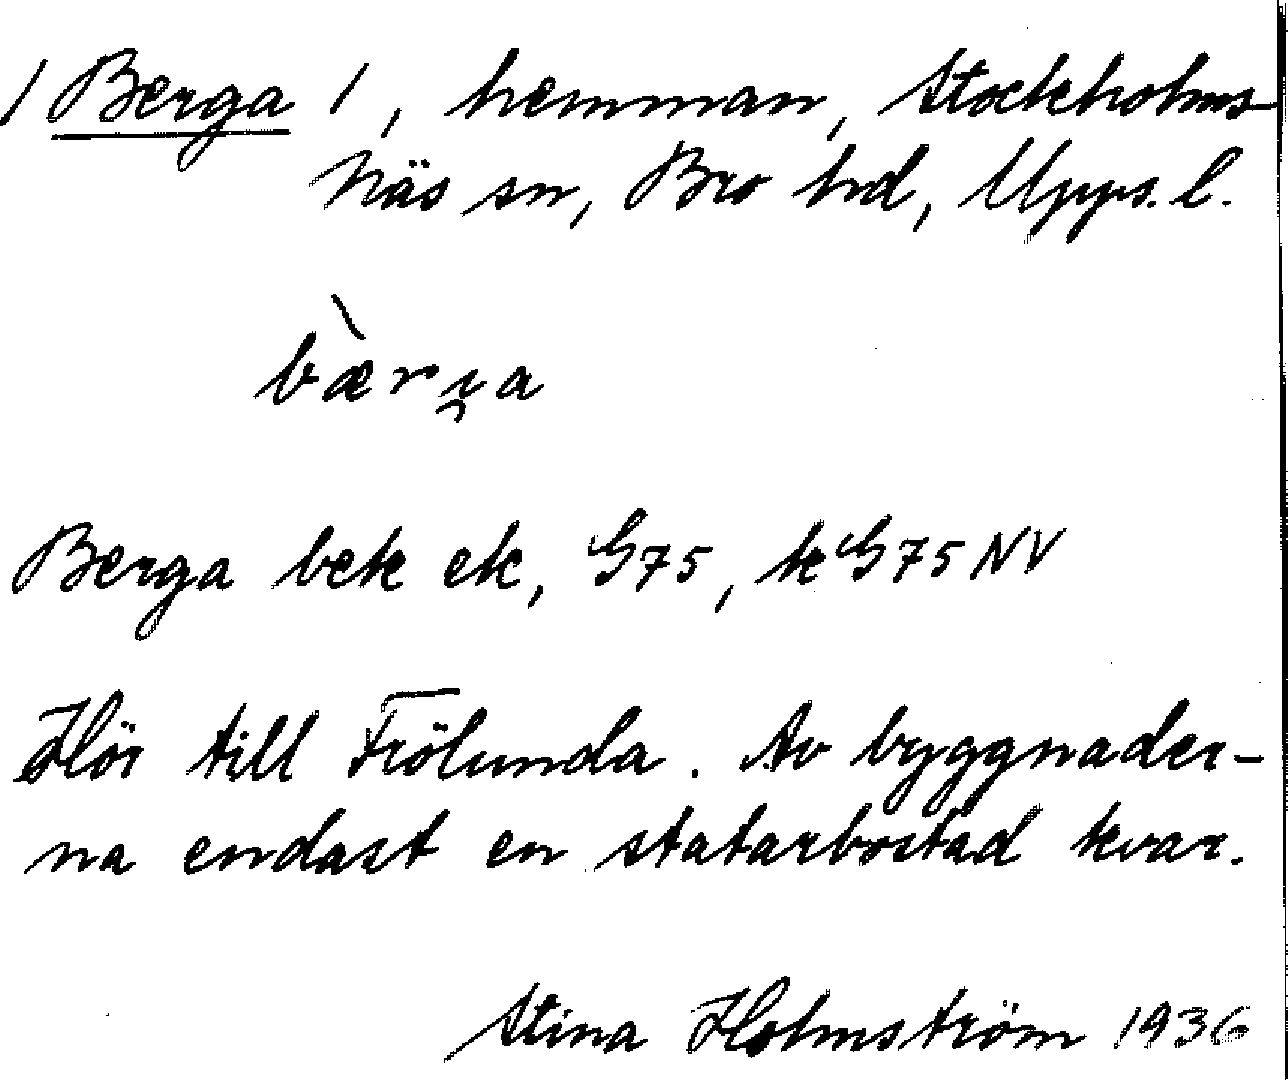 / Berga /, hemman, Stockholms-
Näs sn, Bro hd, Upps. l.
bær̀i̯a
Berga bek ek, G75, kG75NV
Hör till Frölunda. Av byggnader-
na endast en statarbostad kvar.
Stina Holmström 1936